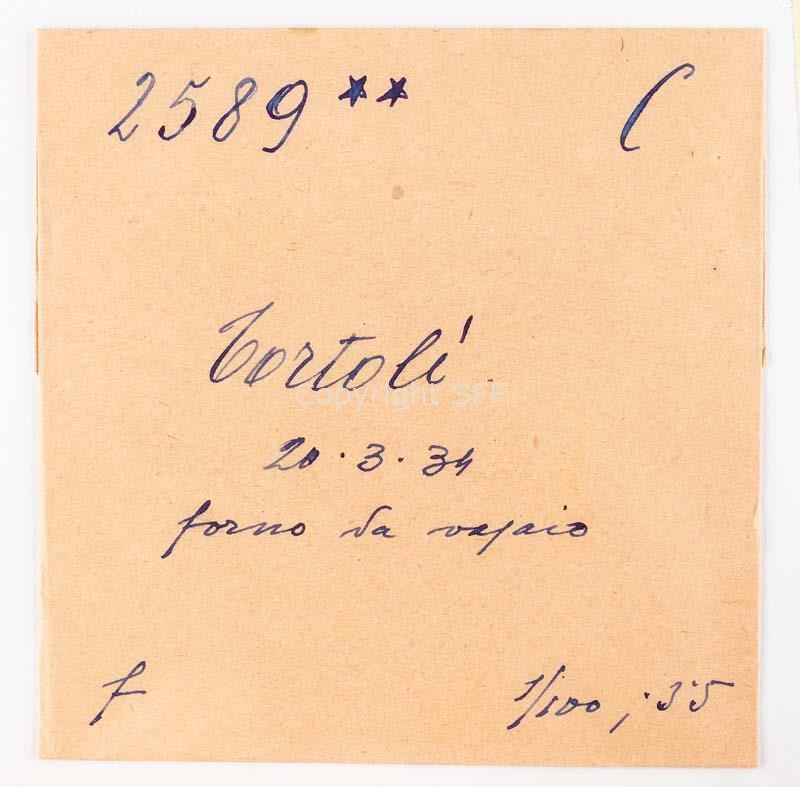 2589 ** C
Tortolì
Copyright SFF
20.3.34
forno da vasaio
f 1/100 ; 3'5